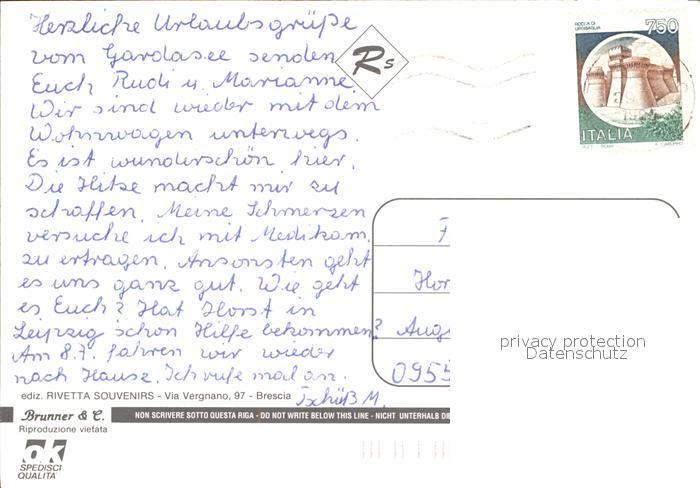 Herzliche Urlaubsgrüße
vom Gardasee senden
Euch Rudi u. Marianne.
Wir sind wieder mit dem
Wohnwagen unterwegs.
Es ist wunderschön hier.
Die Hitze macht mir zu
schaffen. Meine Schmerzen
versuche ich mit Medikam.
zu ertragen. Ansonsten geht
es uns ganz gut. Wie geht
es Euch? Hat Horst in
Leipzig schon Hilfe bekommen?
Am 8.7. fahren wir wieder
nach Hause. Ich rufe mal an.
Tschüß M.
ediz. RIVETTA SOUVENIRS - Via Vergnano, 97 - Brescia
Brunner & C.
Riproduzione vietata
NON SCRIVERE SOTTO QUESTA RIGA - DO NOT WRITE BELOW THIS LINE - NICHT UNTERHALB DI
ok
SPEDISCI
QUALITA'
Rs
ROCCA DI
URBISAGLIA
750
ITALIA
F
Hor
Aug
0955
privacy protection
Datenschutz